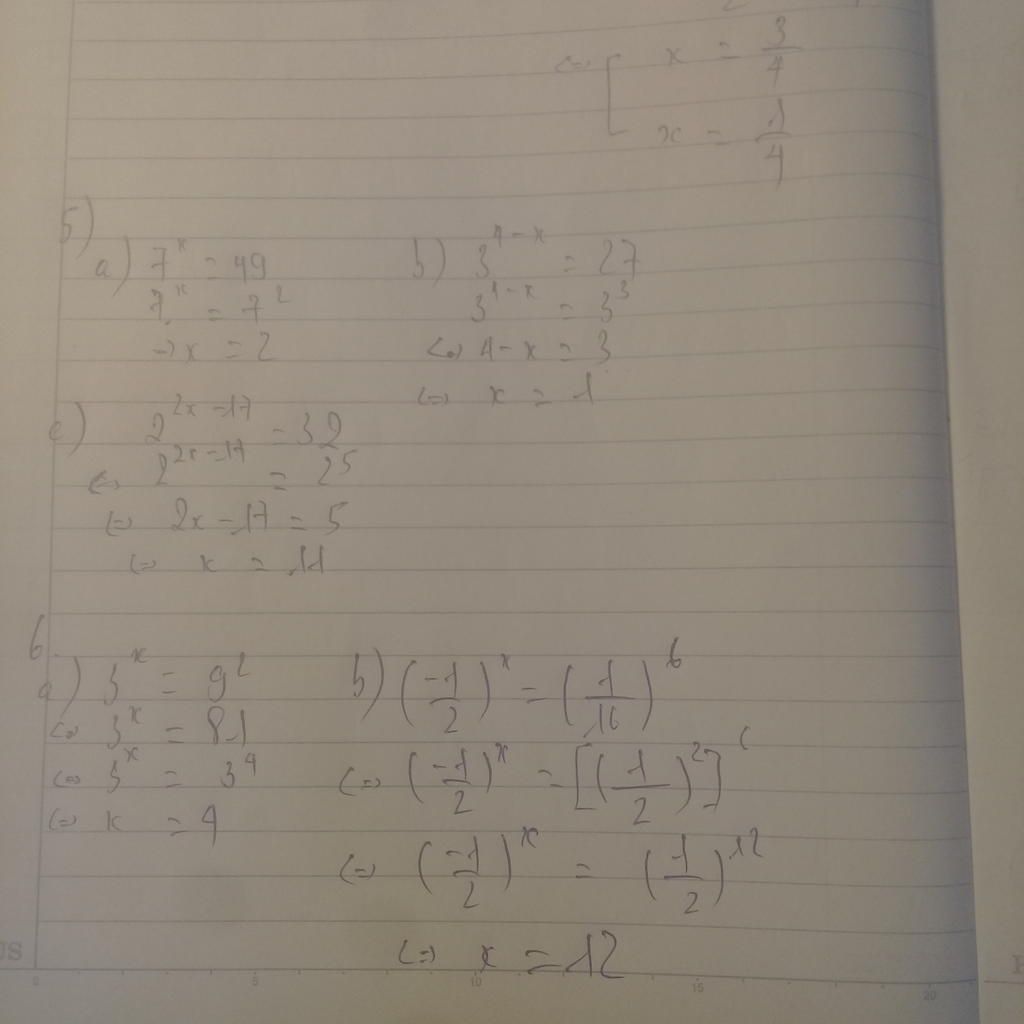 ⇔ [ x = 3/4
x = 1/4
5)
a) 7^x = 49
7^x = 7^2
→ x = 2
b) 3^(4-x) = 27
3^(4-x) = 3^3
⇔ 4-x = 3
⇔ x = 1
c) 2^(2x-17) = 32
⇔ 2^(2x-17) = 2^5
⇔ 2x-17 = 5
⇔ x = 11
6.
a) 3^x = 9^2
⇔ 3^x = 81
⇔ 3^x = 3^4
⇔ x = 4
b) (-1/2)^x = (1/16)^6
⇔ (-1/2)^x = [(1/2)^2]^(
⇔ (-1/2)^x = (1/2)^12
⇔ x = 12
US
0 5 10 15 20